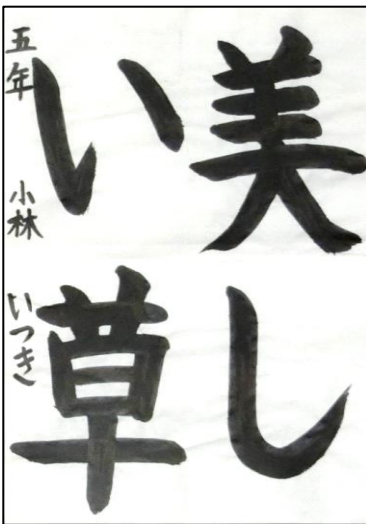 美し
い草
五年 小林 いつき